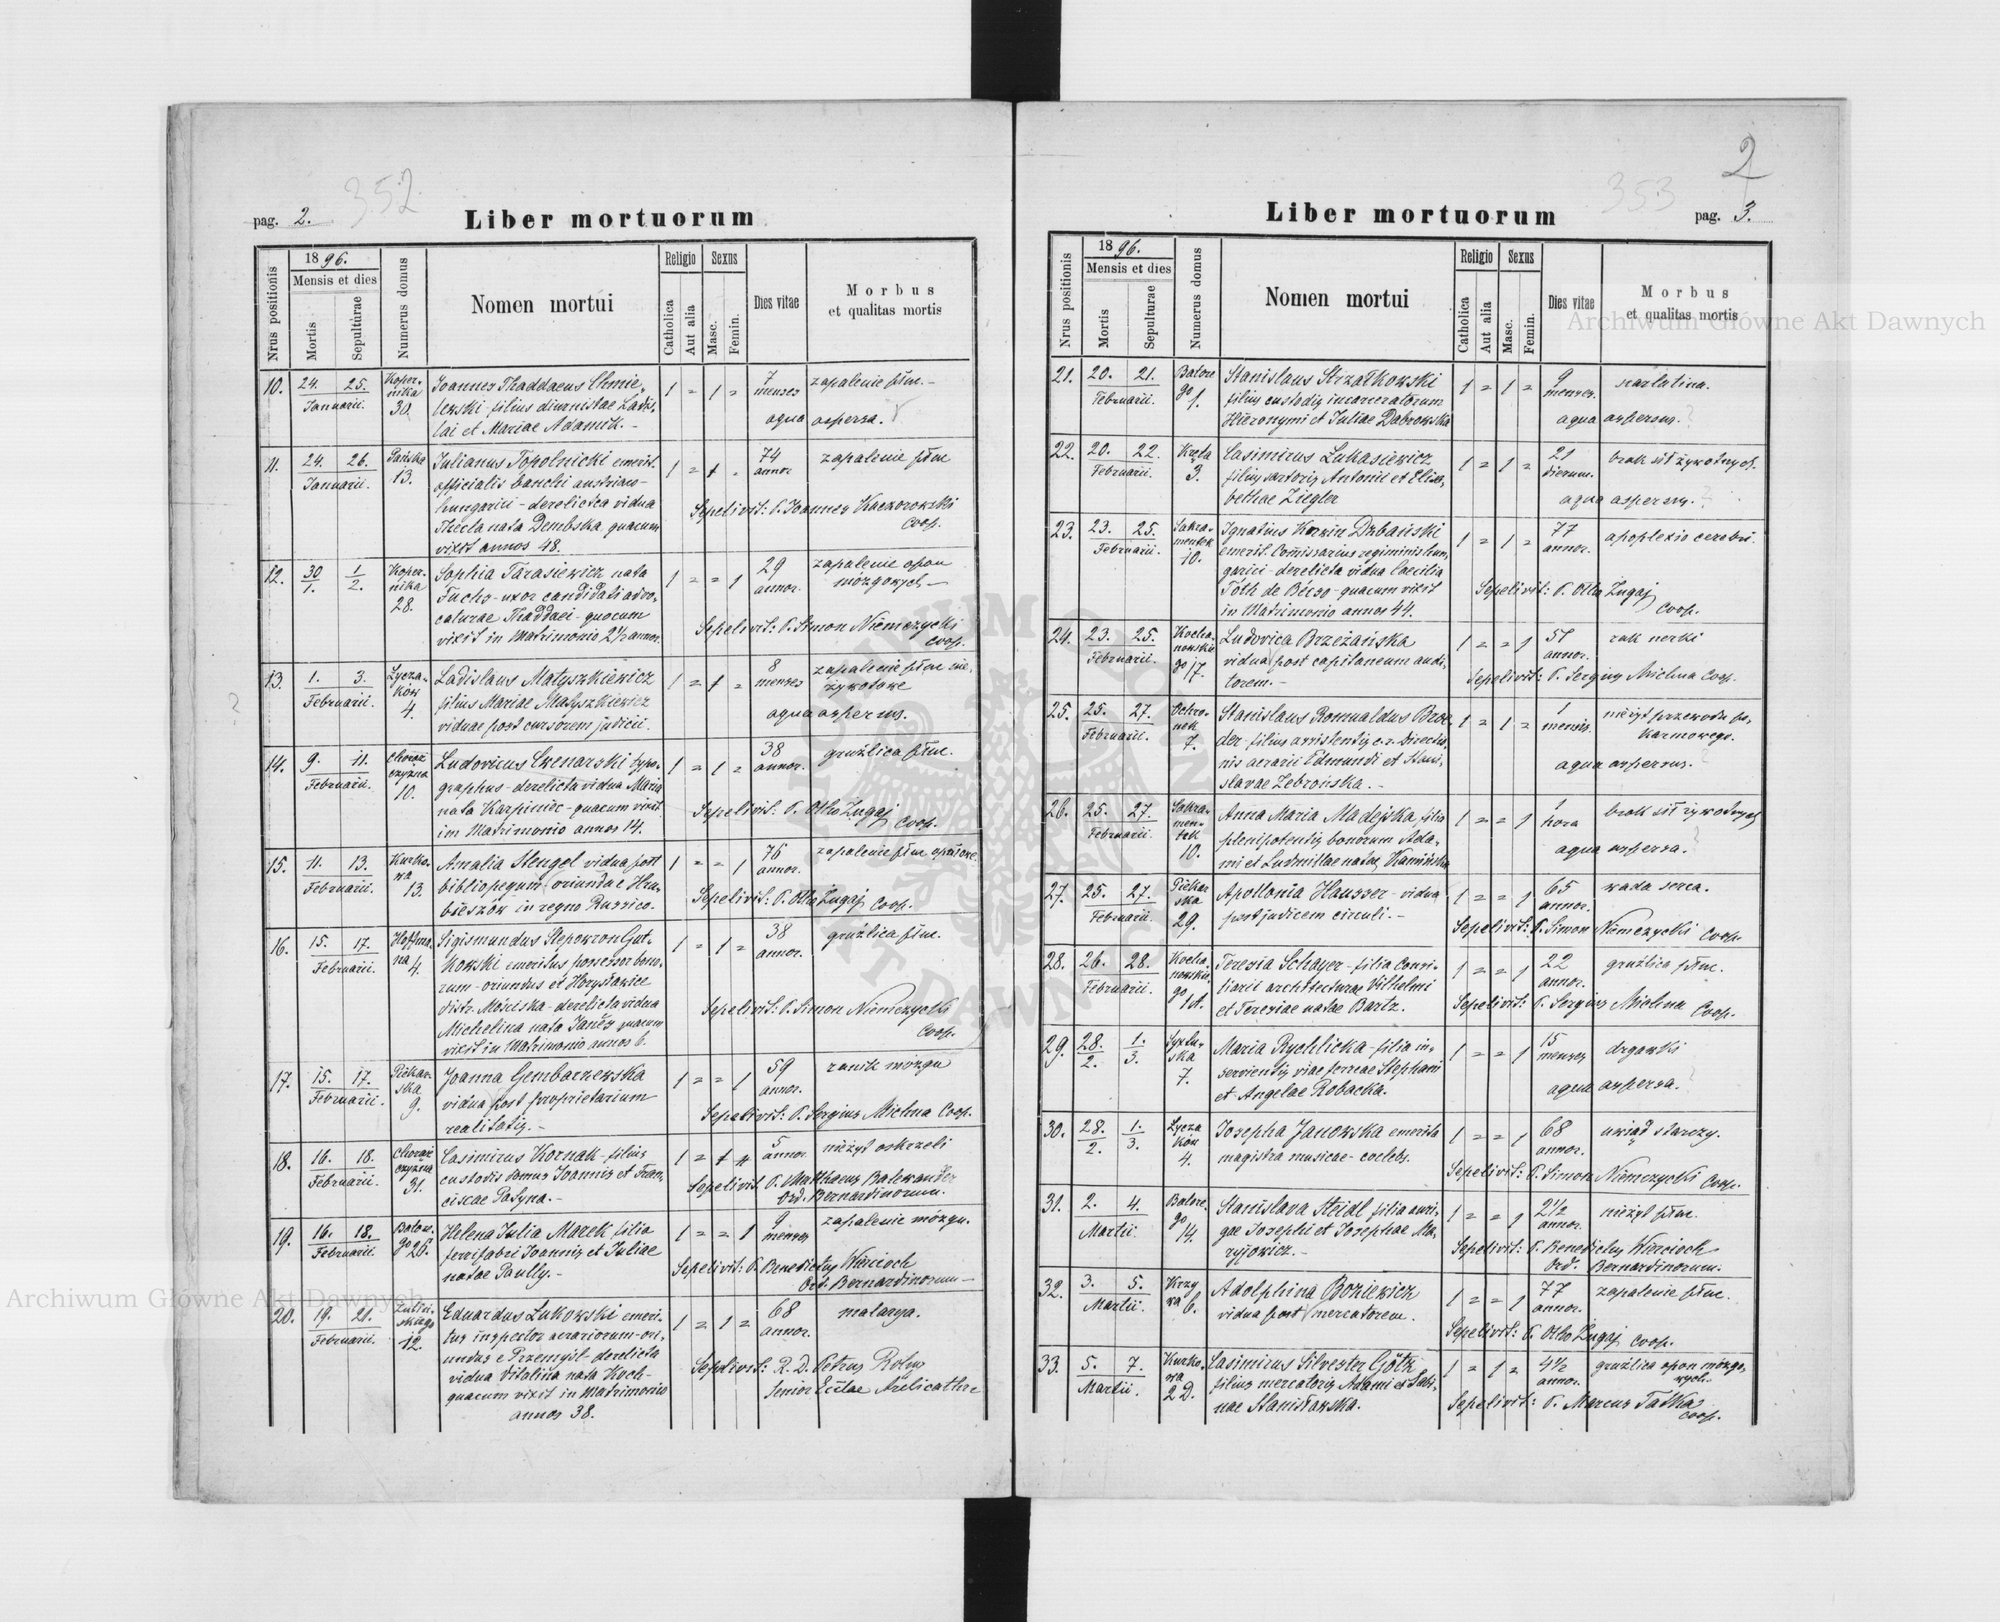 352
pag. 2.
Liber mortuorum
Nrus positionis
1896.
Mensis et dies
Mortis
Sepulturae
Numerus domus
Nomen mortui
Religio
Catholica
Aut alia
Sexus
Masc.
Femin.
Dies vitae
Morbus
et qualitas mortis
10. 24. 25. Januarii. Koper-nika 30.
Joannes Thaddaeus Chmie-
lewski filius diurnistae Ladis-
lai et Mariae Adamik. -
1 = 1 = 7 menses zapalenie płuc. -
aqua aspersa.
11. 24. 26. Januarii. Pańska 13.
Julianus Topolnicki emerit.
officialis banchi austriaco-
hungarici - derelicta vidua
Thecla nata Dembska quacum
vixit annos 48.
1 = 1 = 74 annor. zapalenie płuc
Sepelivit: P. Joannes Kaczorowski
Coop.
12. 30/1. 1/2. Koper-nika 28.
Sophia Tarasiewicz nata
Fuchs - uxor candidati advo-
caturae Thaddaei - quocum
vixit in Matrimonio 2½ annor.
1 = = 1 29 annor. zapalenie opon
mózgowych -
Sepelivit: P. Simon Niemczycki
Coop.
13. 1. 3. Februarii. Łycza-kow 4.
Ladislaus Matyszkiewicz
filius Mariae Matyszkiewicz
viduae post cursorem judicii.
1 = 1 = 8 menses zapalenie płuc nie-
żytowe
aqua aspersus.
14. 9. 11. Februarii. Chorąż-czyzna 10.
Ludovicus Cwenarski typo-
graphus - derelicta vidua Maria
nata Karpiniec - quacum vixit
in Matrimonio annos 14.
1 = 1 = 38 annor. gruźlica płuc.
Sepelivit: P. Otho Zugaj Coop.
15. 11. 13. Februarii. Kurko-wa 13.
Amalia Stengel vidua post
bibliopegum oriunda e Hru-
bieszów in regno Russico.
1 = = 1 76 annor. zapalenie płuc
Sepelivit: P. Otho Zugaj Coop.
16. 15. 17. Februarii. Hoffma-na 4.
Sigismundus Slepowron Gut-
kowski emeritus possessor bono-
rum - oriundus et Horysławice
distr. Mościska - derelicta vidua
Michelina nata quacum
vixit in Matrimonio annos 6.
1 = 1 = 38 annor. gruźlica płuc.
Sepelivit: P. Simon Niemczycki
Coop.
17. 15. 17. Februarii. Piekar-ska 9.
Joanna Gembarzewska
vidua post proprietarium
realitatis. -
1 = = 1 59 annor. zanik mózgu
Sepelivit: P. Sergius Michna Coop.
18. 16. 18. Februarii. Chorąż-czyzna 31.
Casimirus Kornak - filius
custodis domus Joannis et Fran-
ciscae Pasyna. -
1 = 1 5 annor. nieżyt oskrzeli
Sepelivit P. Matthaeus Balewander
Ord. Bernardinorum.
19. 16. 18. Februarii. Batore-go 26.
Helena Julia Marek filia
ferrifabri Joannis et Juliae
natae Paully. -
1 = = 1 9 menses zapalenie mózgu.
Sepelivit: P. Benedictus Wiercioch
Ord. Bernardinorum -
20. 19. 21. Februarii. 12.
Eduardus Lukowski emeri-
tus inspector aerariorum - ori-
undus e Przemyśl - derelicta
vidua Vitalina nata Koch -
quacum vixit in Matrimonio
annos 38.
1 = 1 = 68 annor. malarya.
Sepelivit: R. D. Petrus
Senior
2
353
Liber mortuorum
pag. 3.
Nrus positionis
1896.
Mensis et dies
Mortis
Sepulturae
Numerus domus
Nomen mortui
Religio
Catholica
Aut alia
Sexus
Masc.
Femin.
Dies vitae
Morbus
et qualitas mortis
21. 20. 21. Februarii. Batore-go 1.
Stanislaus Strzałkowski
filius custodis incarceratorum
Hieronymi et Juliae Dąbrowska
1 = 1 = 9 menses. szarlatina.
aqua aspersus.
22. 20. 22. Februarii. Kręta 3.
Casimirus Lukasiewicz
filius sartoris Antonii et Elisa-
bethae Ziegler
1 = 1 = 21 dierum. brak sił żywotnych.
aqua aspersus.
23. 23. 25. Februarii. Sakra-mentek 10.
Ignatius Korwin Dzbański
emerit. Comissarius regiminis hun-
garici - derelicta vidua Caecilia
Tóth de Bécso - quacum vixit
in Matrimonio annos 44.
1 = 1 = 77 annor. apoplexio cerebri.
Sepelivit: P. Otho Zugaj
Coop.
24. 23. 25. Februarii. Kocha-nowskie-go 17.
Ludovica Brzeżańska
vidua post capitaneum audi-
torem. -
1 = = 1 57 annor. rak nerki
Sepelivit: P. Sergius Michna Coop.
25. 25. 27. Februarii. Ochro-nek 7.
Stanislaus Romualdus Broe-
der - filius assistentis c. r. Directio-
nis aerarii Edmundi et Stani-
slavae Zebrońska. -
1 = 1 = 1 mensis. nieżyt przewodu po-
karmowego.
aqua aspersus.
26. 25. 27. Februarii. Sakra-men-tek 10.
Anna Maria Madejska, filia
plenipotentis bonorum Ada-
mi et Ludmillae natae Kamińska
1 = = 1 1 hora brak sił żywotnych
aqua aspersa.
27. 25. 27. Februarii. Piekar-ska 29.
Apollonia Hausser - vidua
post judicem circuli. -
1 = = 1 65 annor. wada serca.
Sepelivit: P. Simon Niemczycki Coop.
28. 26. 28. Februarii. Kocha-nowskie-go 1A.
Teresia Schayer - filia Consi-
liarii architecturae Vilhelmi
et Teresiae natae Bartz.
1 = = 1 22 annor. gruźlica płuc.
Sepelivit: P. Sergius Michna Coop.
29. 28./2. 1./3. Syxtu-ska 7.
Maria Rychlicka - filia in-
servientis viae ferreae Stephani
et Angelae Robacka.
1 = = 1 15 menses drgawki
aqua aspersa.
30. 28./2. 1./3. Łycza-kow 4.
Josepha Janowska emerita
magistra musicae - coelebs.
1 = = 1 68 annor. uwiąd starczy.
Sepelivit: P. Simon Niemczycki Coop.
31. 2. 4. Martii. Batore-go 14.
Stanislava Steidl filia auri-
gae Josephi et Josephae Ma-
ryjowicz. -
1 = = 1 2½ annor. nieżyt płuc.
Sepelivit: P. Benedictus Wiercioch
Ord. Bernardinorum.
32. 3. 5. Martii. Krzy-wa 6.
Adolphina Boziewicz
vidua post mercatorem.
1 = = 1 77 annor. zapalenie płuc.
Sepelivit: P. Otho Zugaj Coop.
33. 5. 7. Martii. Kurko-wa 2 D.
Casimirus Silvester Götz
filius mercatoris Adami et Sabi-
nae Stanisławska.
1 = 1 = 4½ annor. gruźlica opon mózgo-
wych.
Sepelivit: P. Marcus Tatka
Coop.
Archiwum Główne Akt Dawnych
Archiwum Główne Akt Dawnych